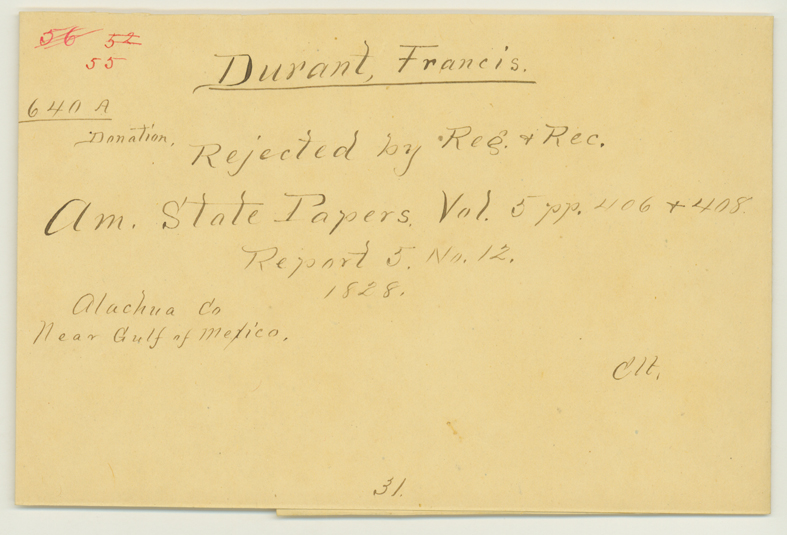 56 52
55
Durant, Francis.
640 A
Donation.
Rejected by Reg. & Rec.
Am. State Papers. Vol. 5 pp. 406 & 408.
Report 5. No. 12.
1828.
Alachua Co
Near Gulf of Mexico.
31.